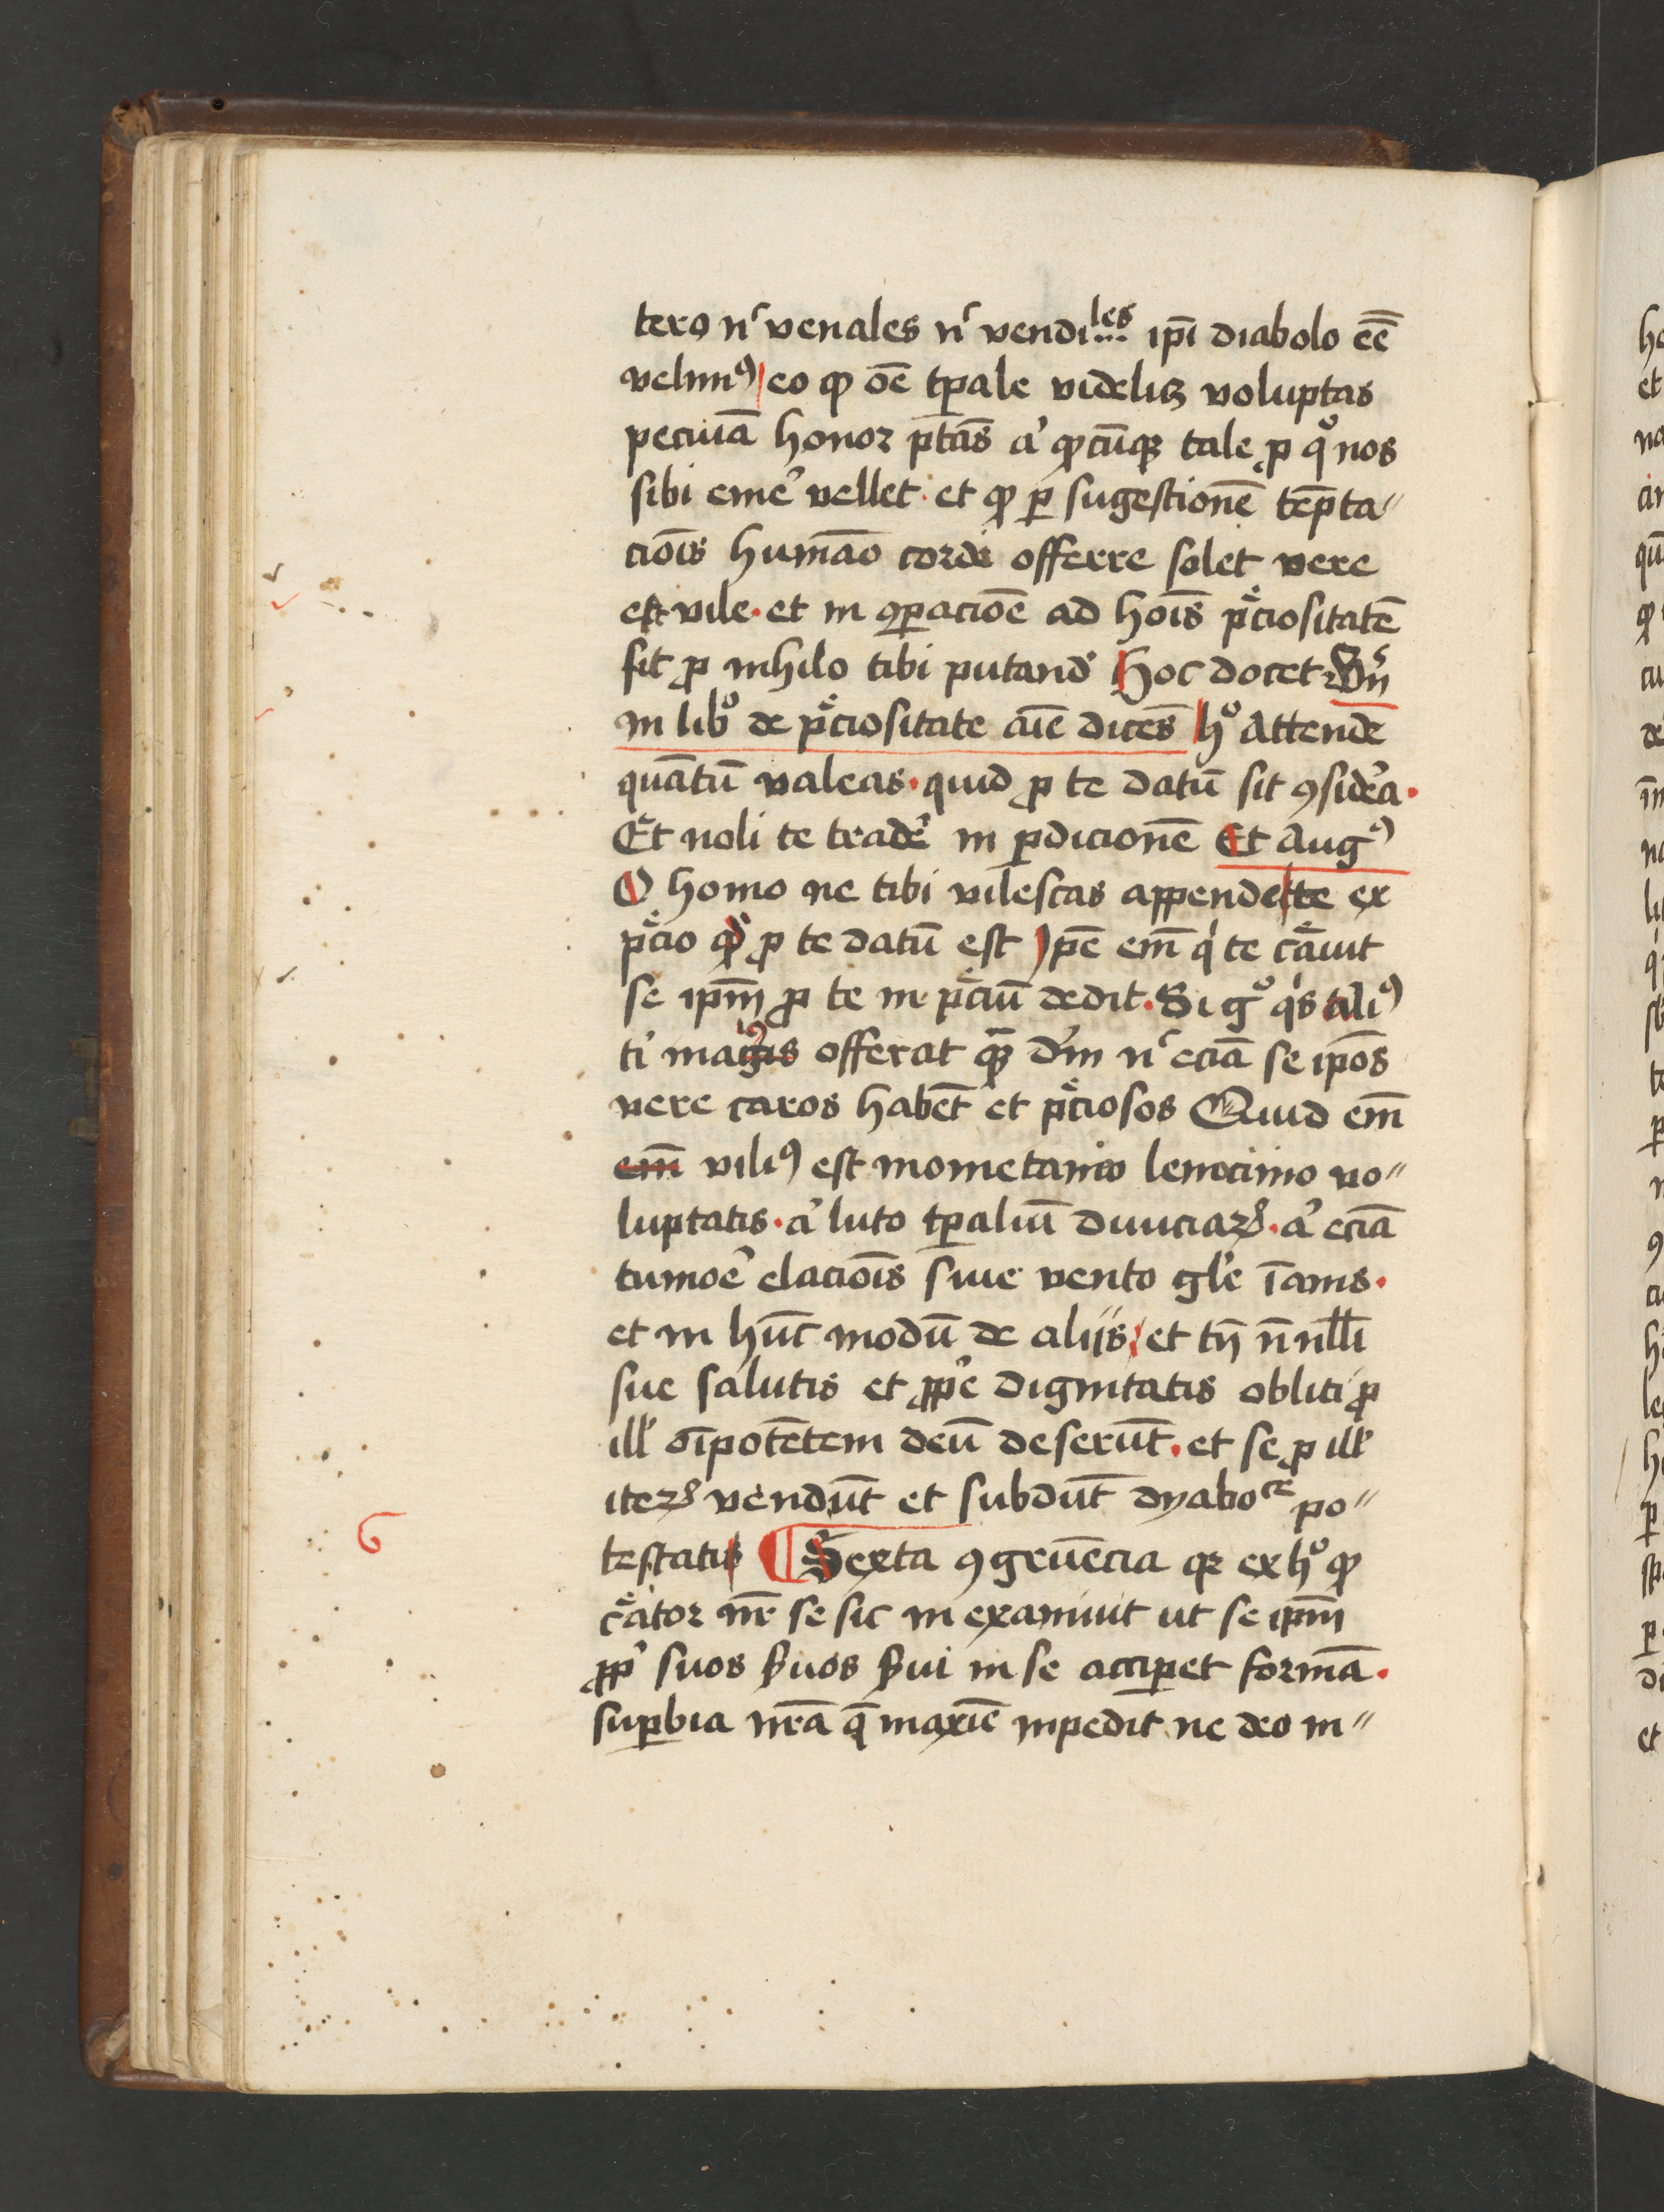 tero nͨ venales nͨ vendiles ip̄i diabolo eē̄
velimꝰ eo ꝙ oē̄ tp̄ale videliꝫ voluptas
pecuīa honor p̄tās a᷒ q̄cūqꝫ tale ꝓ qͦ nos
sibi eme᷒ vellet · et ꝙ ꝑ sugestionē tēpta〃
cioīs humāo cordi offerre solet vere
est vile · et in ꝯꝑacioē ad hoīs p̄ciositatē
sit ꝓ nihilo tibi putand᷒ Hoc docet Bn̄ͨ
in libͦ de p̄ciositate aīe dicēs hͦ Attende
quātū valeas · quid ꝓ te datū sit ꝯside᷒a ·
Et noli te trade᷒ in ꝑdicionē Et Augꝰ
O homo ne tibi vilescas appende te ex
p̄cio qḋ ꝓ te datū est Ip̄e em̄ qͥ te c̄auit
se ip̄m ꝓ te in p̄ciū dedit · Si gͦ qͥs aliꝰ
ti᷒ magis offerat qꝫ̄ d᷒m nͨ eciā se ip̄os
vere caros habēt et p̄ciosos Quid em̄
em̄ viliꝰ est mometanio lenocinio vo〃
luptatis · a᷒ luto tp̄aliū diuiciaꝝ · a᷒ eciā
tumoe᷒ elacioīs siue vento gl᷒e īanis ·
et in hūc modū de aliis et tn̄ n̄nll̄i
sue salutis et ꝓp᷒e dignitatis obliti ꝓ
ill᷒ oīpotētem deū deserūt · et se ꝓ ill᷒
iteꝝ vendūt et subdūt dyaboͨͤ po〃
testatis ¶ Sexta ꝯgruēcia qꝛ ex hͦ ꝙ
6
c̄ator nr̄ se sic in exaniuit ut se ip̄m
ꝓp᷒ suos ẜuos ẜui in se acciꝑet formā ·
suꝑbia nr̄a q̄ maxīe inpedit ne deo in〃